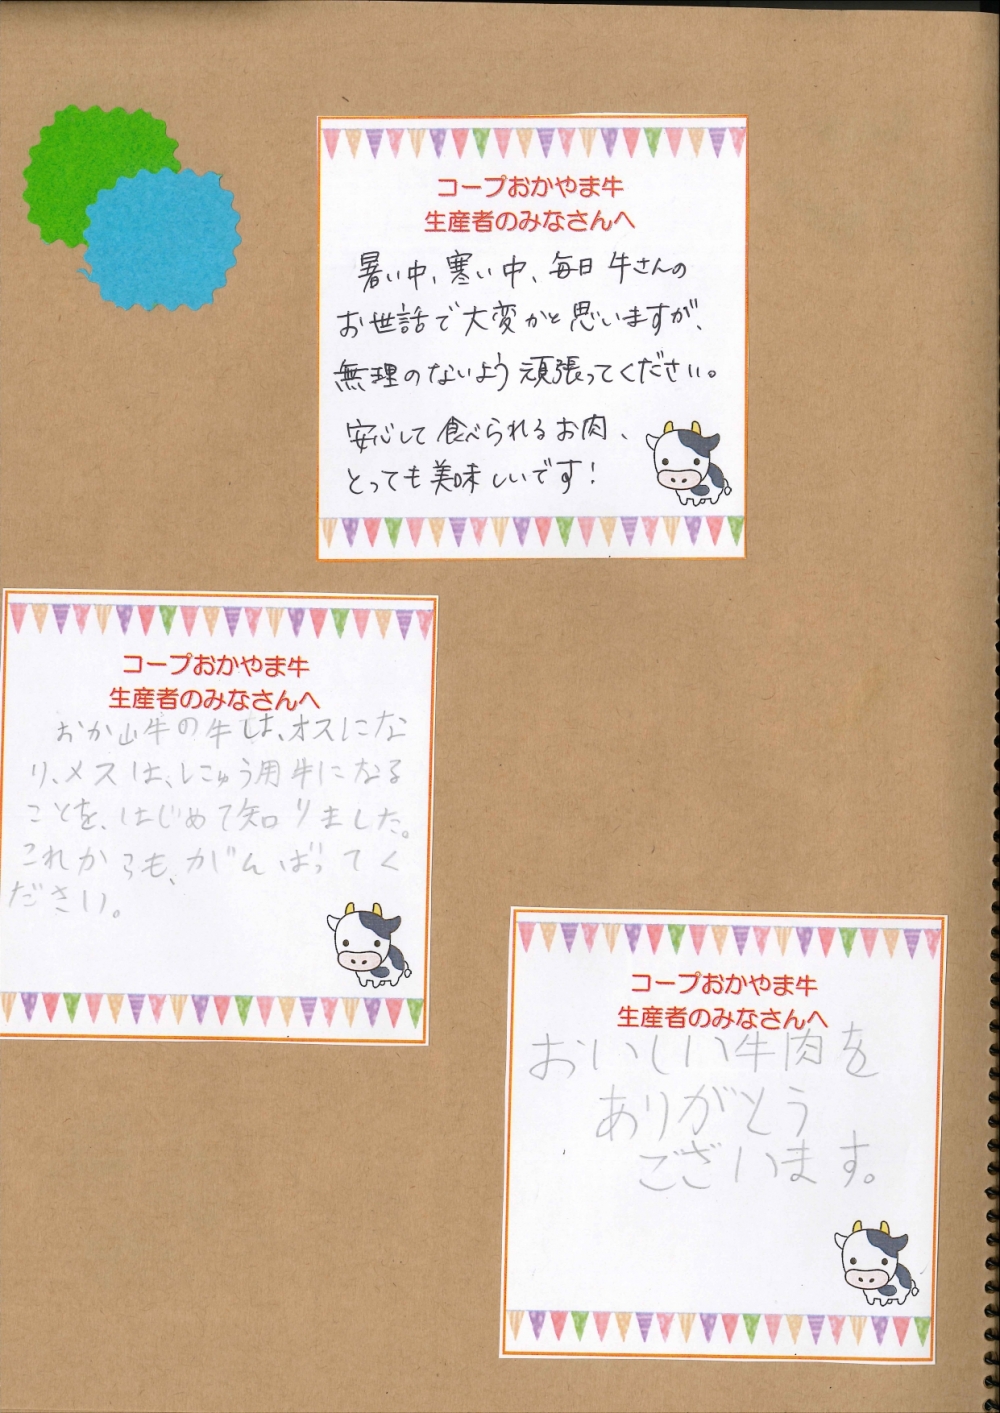 コープおかやま牛
生産者のみなさんへ
暑い中、寒い中、毎日 牛さんの
お世話で大変かと思いますが、
無理のないよう頑張ってください。
安心して食べられるお肉、
とっても美味しいです!
コープおかやま牛
生産者のみなさんへ
おか山牛の牛は、オスにな
り、メスは、にゅう用牛になる
ことを、はじめて知りました。
これからも、がんばってく
ださい。
コープおかやま牛
生産者のみなさんへ
おいしい牛肉を
ありがとう
ございます。